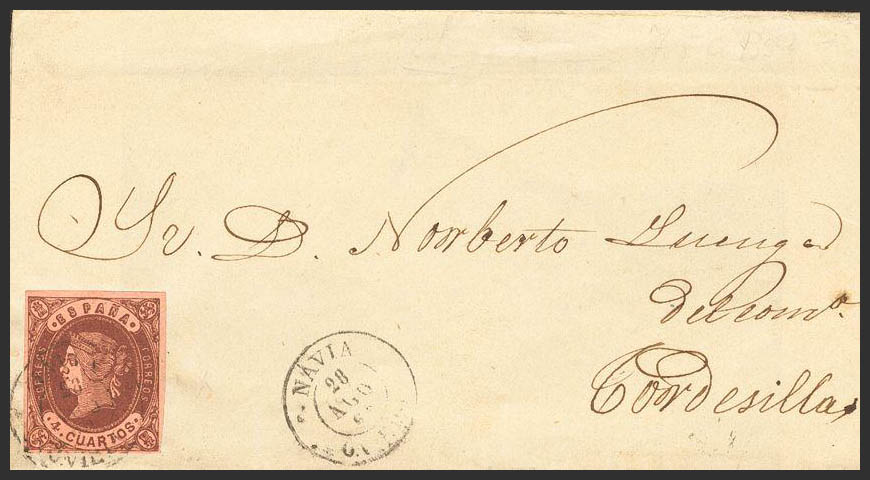 Sr. D. Norberto Luengo
del como.
Tordesillas
ESPAÑA
CORREOS CORREOS
4. CUARTOS
NAVIA
28
AGO